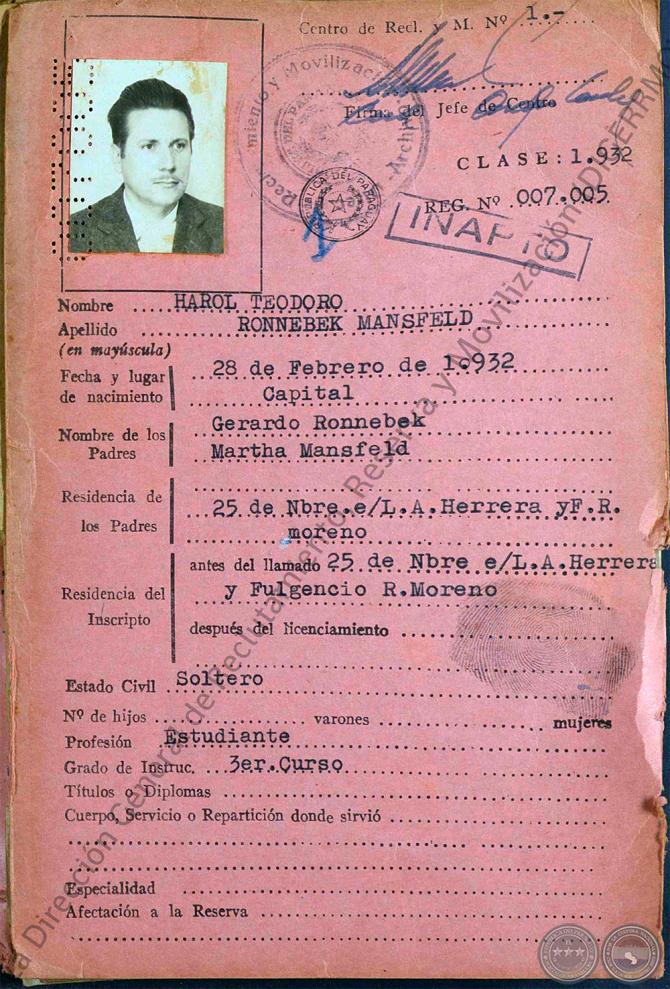 Centro de Recl. y M. Nº 1.-
Firma del Jefe de Centro
CLASE: 1.932
REG. Nº 007.005
INAPTO
REPUBLICA DEL PARAGUAY
Nombre HAROL TEODORO
Apellido RONNEBEK MANSFELD
(en mayúscula)
Fecha y lugar de nacimiento 28 de Febrero de 1.932
Capital
Nombre de los Padres Gerardo Ronnebek
Martha Mansfeld
Residencia de los Padres 25 de Nbre.e/L.A.Herrera yF.R.
moreno
Residencia del Inscripto antes del llamado 25 de Nbre e/L.A.Herrera
y Fulgencio R.Moreno
después del licenciamiento
Estado Civil Soltero
Nº de hijos varones mujeres
Profesión Estudiante
Grado de Instruc. 3er.Curso
Títulos o Diplomas
Cuerpo, Servicio o Repartición donde sirvió
Especialidad
Afectación a la Reserva
Dirección General de Reclutamiento, Reserva y Movilización DIGERRMOV